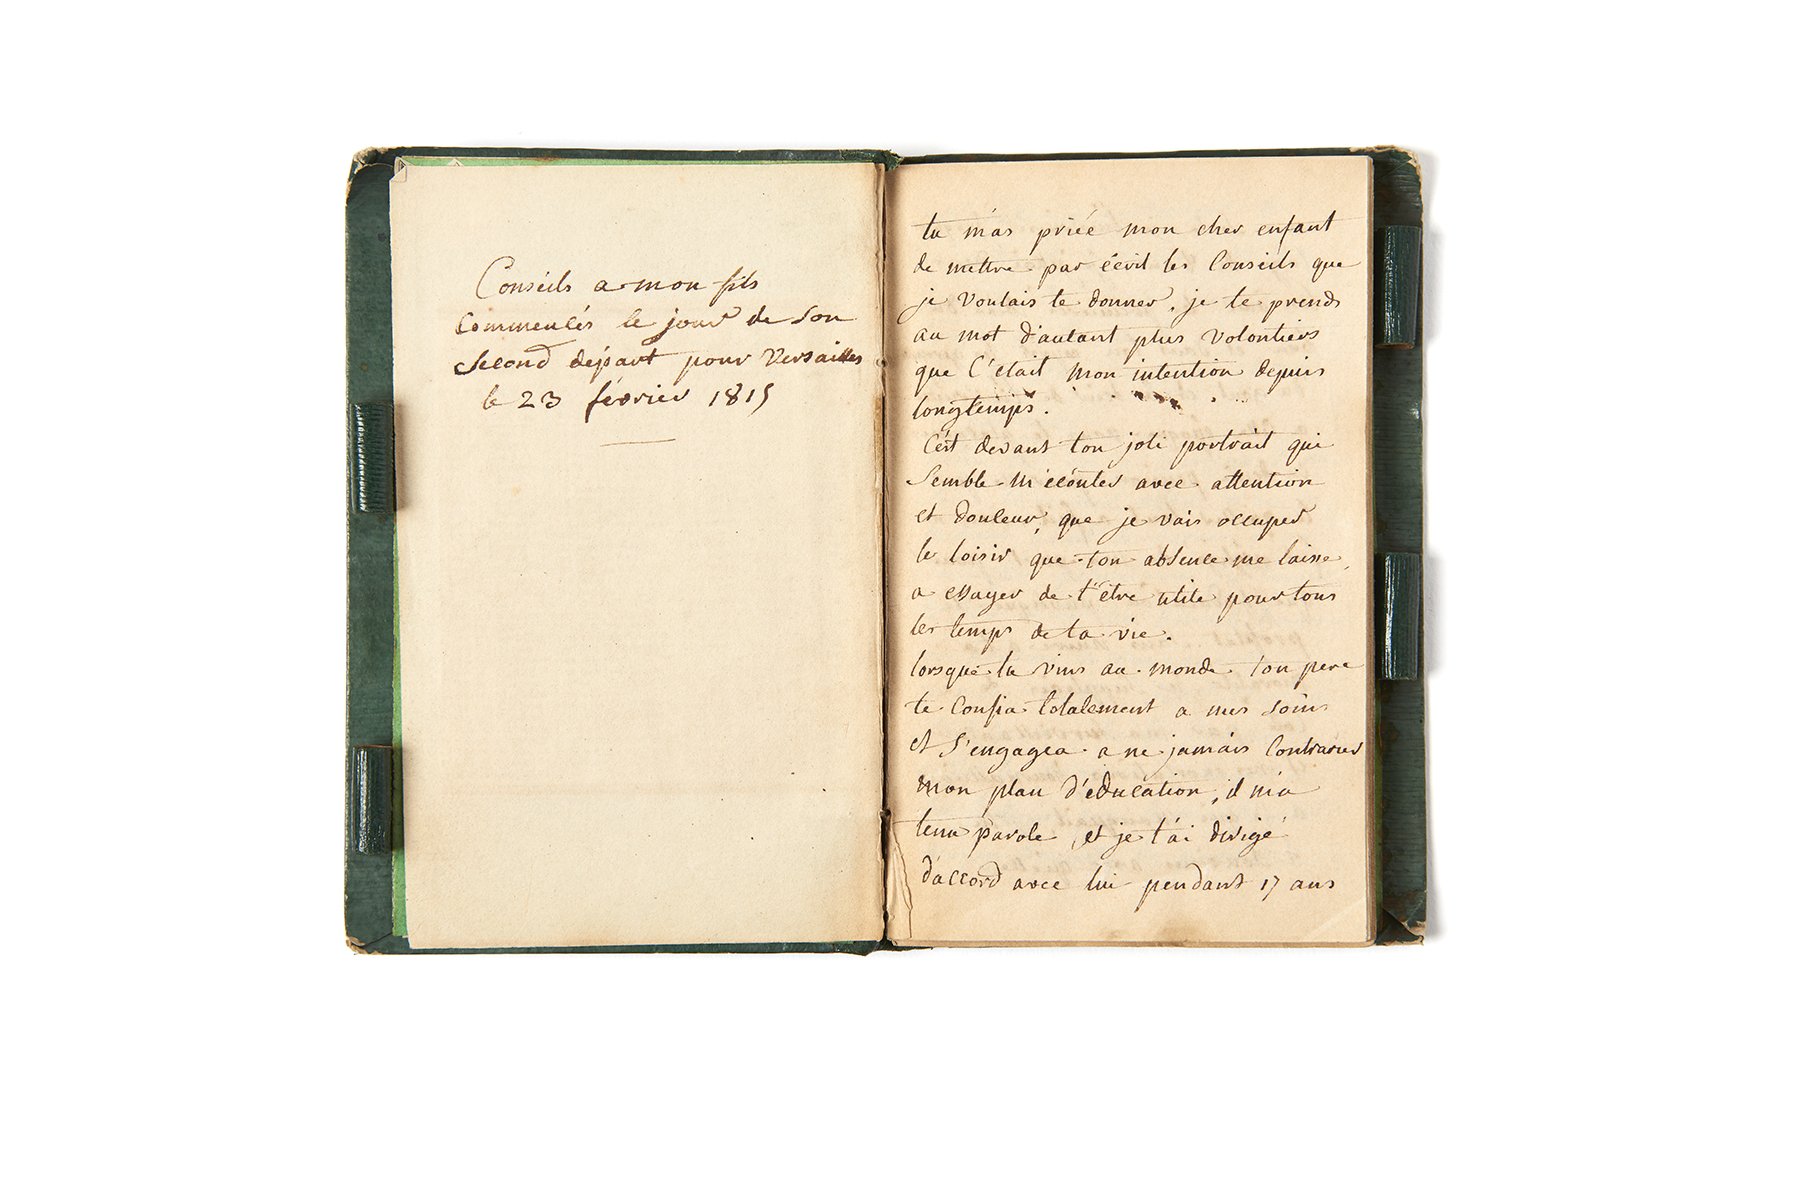 Conseils a mon fils
commencés le jour de son
second départ pour Versailles
le 23 février 1815
tu m'as priée mon cher enfant
de mettre par écrit les Conseils que
je voulais te donner, je te prends
au mot d'autant plus volontiers
que C'était mon intention depuis
longtemps.
C'est devant ton joli portrait qui
semble m'écouter avec attention
et douleur, que je vais occuper
le loisir que ton absence me laisse,
a essayer de t'être utile pour tous
les temps de ta vie.
lorsque tu vins au monde ton pere
te Confia totalement a mes soins
et S'engagea a ne jamais Contrarier
mon plan d'éducation, il m'a
tenu parole, et je t'ai dirigé
d'accord avec lui pendant 17 ans